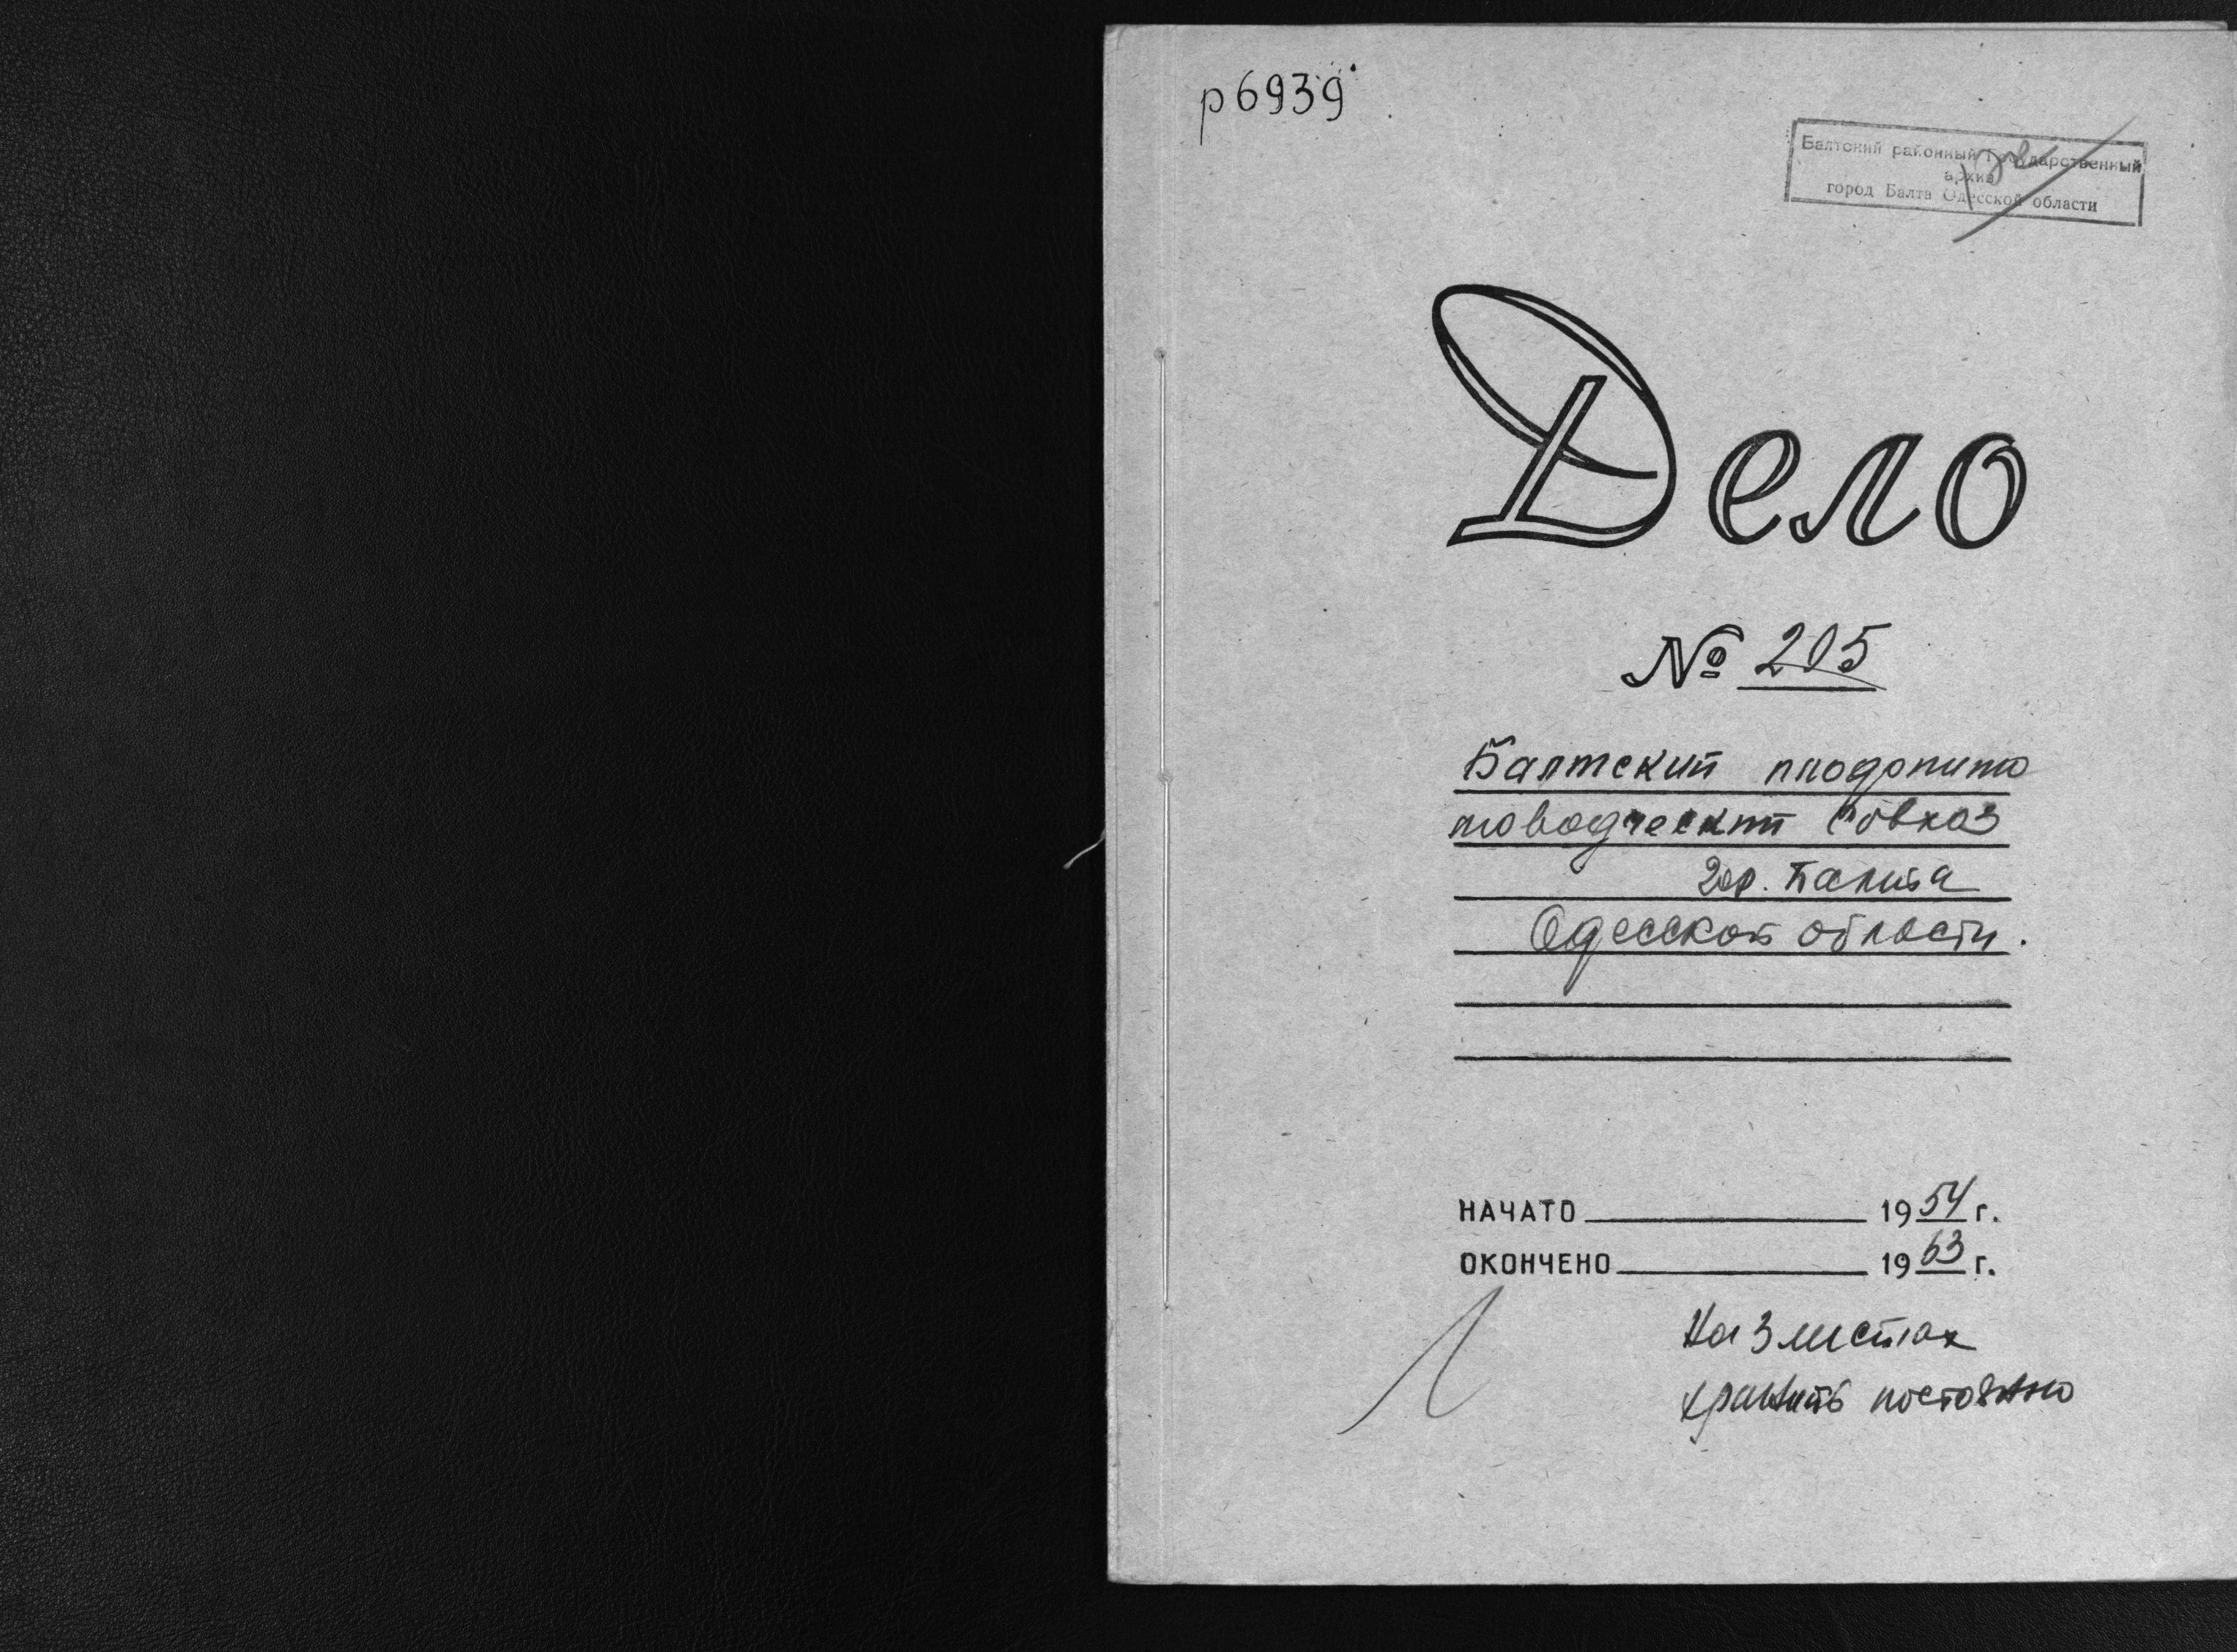 р6939
Балтский районный Государственный
архив
город Балта Одесской области
Дело
№ 205
Балтский плодопито
товодческий совхоз
гор. Балта
Одесской области.
НАЧАТО 1954 г.
ОКОНЧЕНО 1963 г.
На 3 листах
хранить постоянно